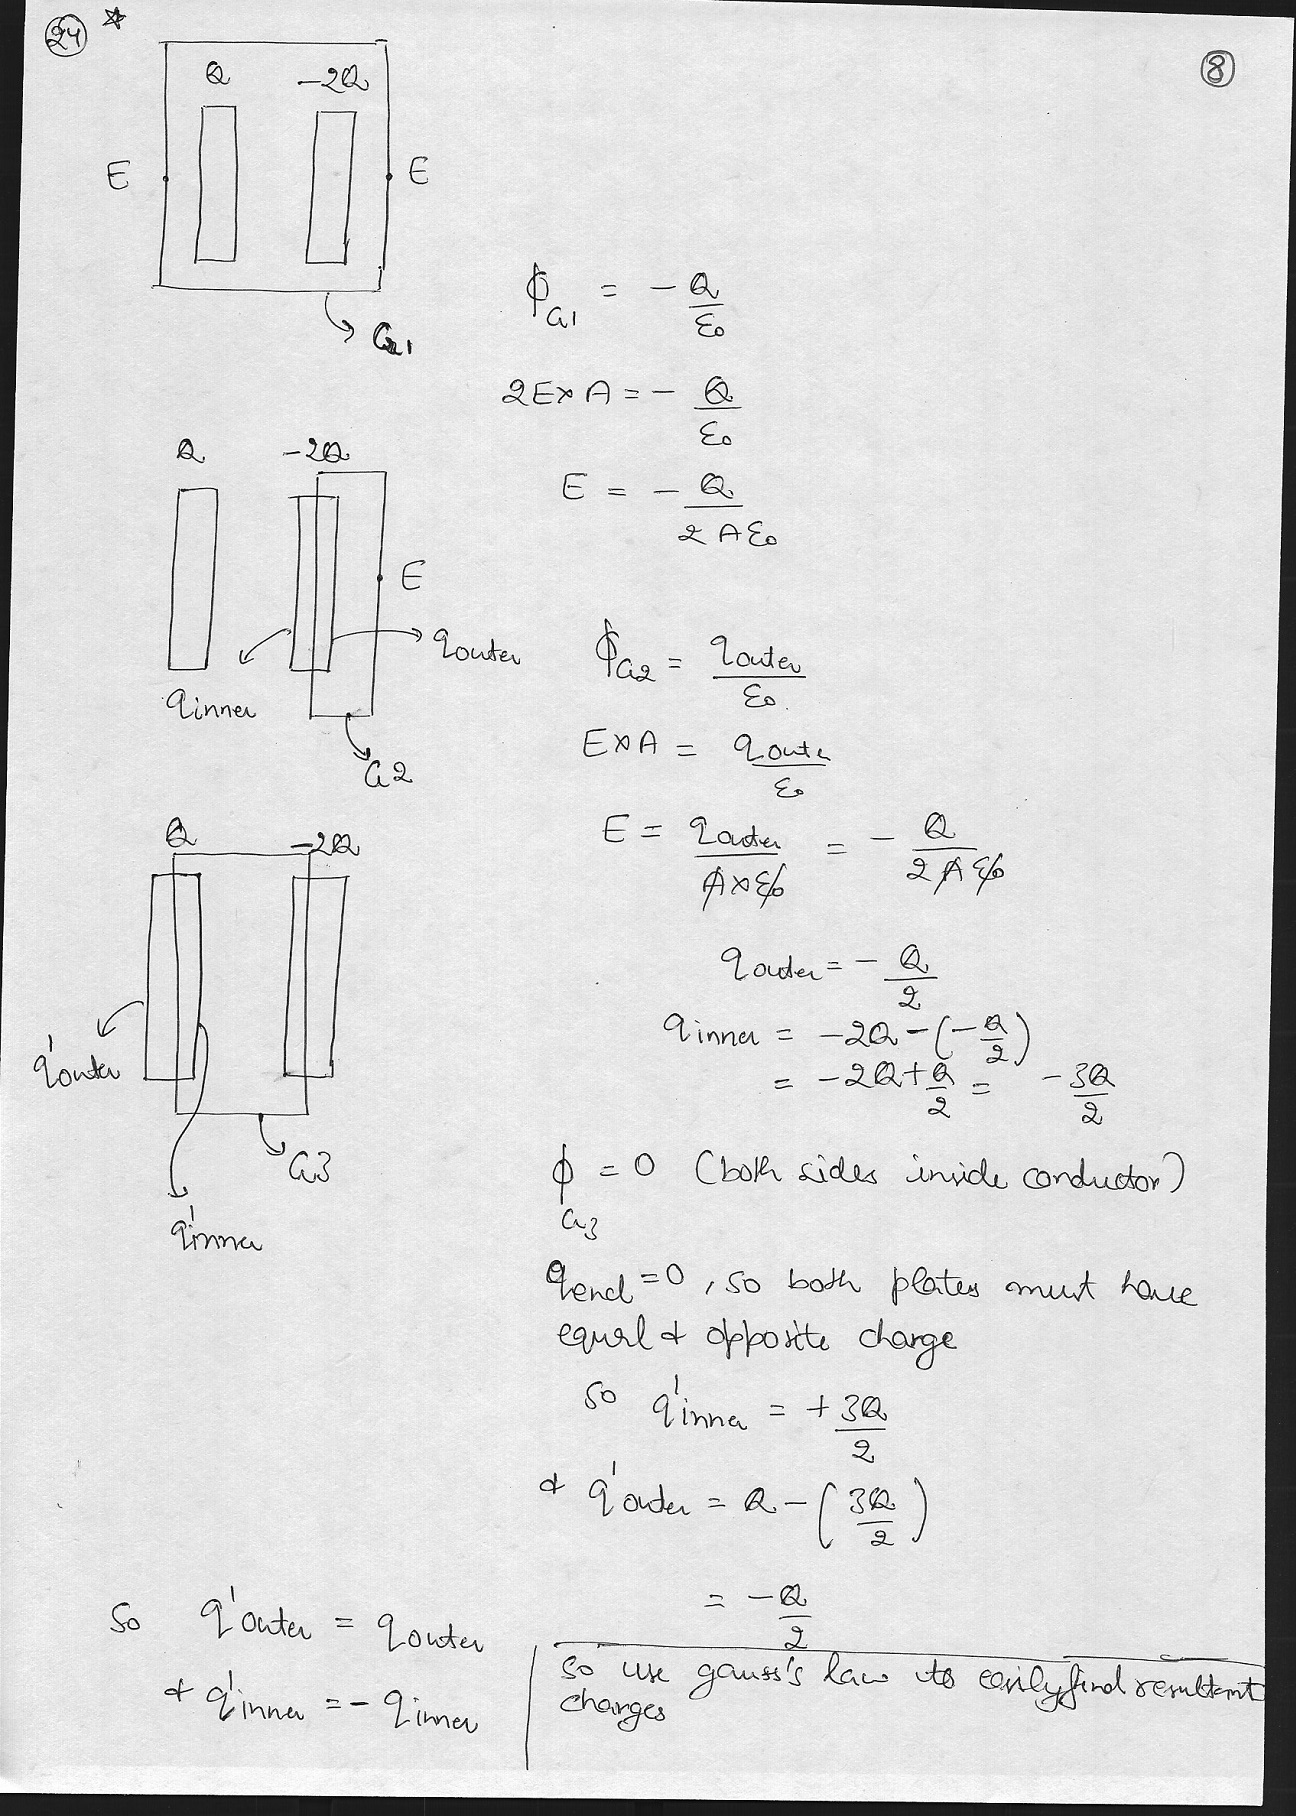 24 *
8
Q -2Q
E E
G1
ϕ_G1 = - Q/ε₀
2E×A = - Q/ε₀
E = - Q/2Aε₀
Q -2Q
E
q outer
q inner
G2
ϕ_G2 = q outer/ε₀
E×A = q oute/ε₀
E = q outer/A×ε₀ = - Q/2Aε₀
q outer = - Q/2
q inner = -2Q - (-Q/2)
= -2Q + Q/2 = -3Q/2
Q -2Q
q' outer
G3
q' inner
ϕ_G3 = 0 (both sides inside conductor)
q encl = 0, so both plates must have
equal & opposite charge
so q' inner = + 3Q/2
& q' outer = Q - (3Q/2)
= -Q/2
So q' outer = q outer
& q' inner = - q inner
So use gauss's law to easily find resultant
charges